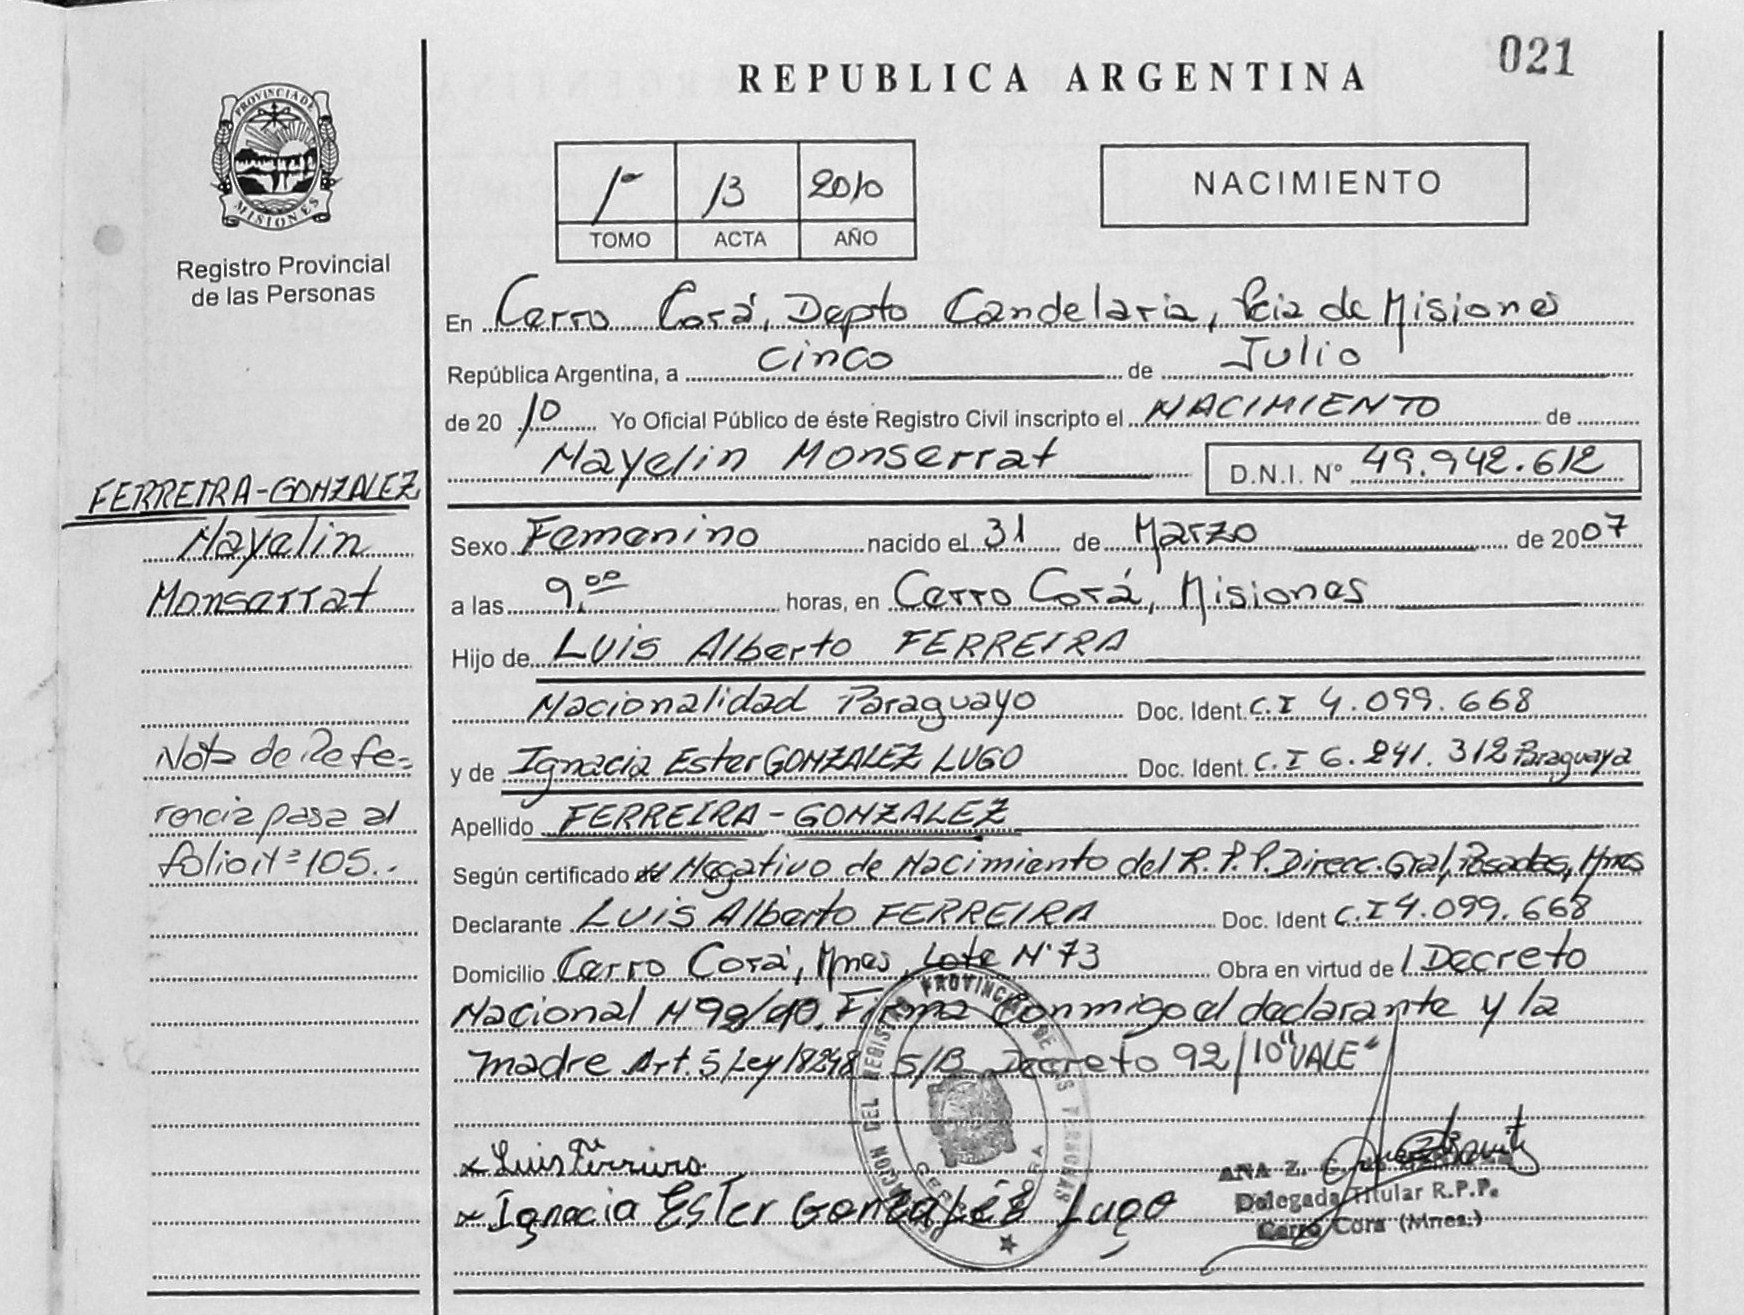 021
REPUBLICA ARGENTINA
PROVINCIA DE
MISIONES
Registro Provincial
de las Personas
1º 13 2010
TOMO ACTA AÑO
NACIMIENTO
En Cerro Corá, Depto Candelaria, Pcia de Misiones
República Argentina, a cinco de Julio
de 2010 Yo Oficial Público de éste Registro Civil inscripto el NACIMIENTO de
Mayelin Monserrat D.N.I. Nº 49.942.612
FERREIRA-GONZALEZ
Mayelin
Monserrat
Sexo Femenino nacido el 31 de Marzo de 2007
a las 9.00 horas, en Cerro Corá, Misiones
Hijo de Luis Alberto FERREIRA
Nacionalidad Paraguayo Doc. Ident. C.I 4.099.668
y de Ignacia Ester GONZALEZ LUGO Doc. Ident. C.I 6.241.312 Paraguaya
Apellido FERREIRA-GONZALEZ
Según certificado de Negativo de Nacimiento del R.P.P. Direcc. Gral, Posadas, Mnes
Declarante Luis Alberto FERREIRA Doc. Ident C.I 4.099.668
Domicilio Cerro Corá, Mnes, Lote Nº 73 Obra en virtud de l Decreto
Nacional N 92/10. Firma Conmigo el declarante y la
madre Art. 5 Ley 18248 S/B Decreto 92/10 "VALE"
Nota de Refe-
rencia pasa al
folio Nº 105..
x Luis Ferreira
x Ignacia Ester Gonzalez Lugo
ANA Z.
Delegada Titular R.P.P.
Cerro Cora (Mnes.)